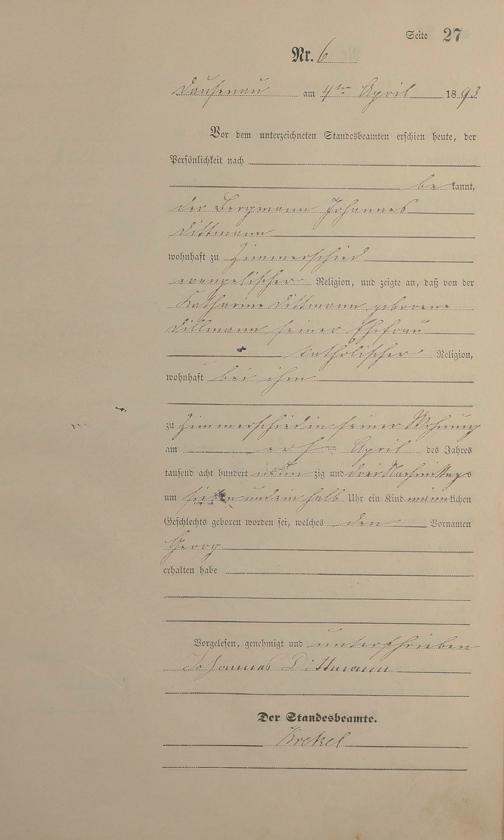 Seite 27
Nr. 6
Dausenau am 4ten April 1893
Vor dem unterzeichneten Standesbeamten erschien heute, der
Persönlichkeit nach
be kannt,
der Bergmann Johannes
Dittmann
wohnhaft zu Zimmerschied
evangelischer Religion, und zeigte an, daß von der
Katharine Dittmann geborene
Dillmann seiner Ehefrau
katholischer Religion,
wohnhaft bei ihm
zu Zimmerschied in seiner Wohnung
am April des Jahres
tausend acht hundert neun zig und drei Nachmittags
um sieben und ein halb Uhr ein Kind männlichen
Geschlechts geboren worden sei, welches den Vornamen
Georg
erhalten habe
Vorgelesen, genehmigt und unterschrieben
Johannes Dittmann
Der Standesbeamte.
Krekel